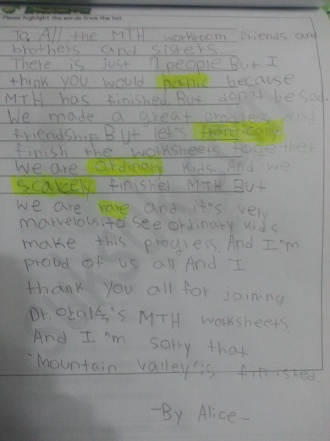 Please highlight the words from the list.
To All the MTH workroom friends and
brothers and sisters....
There is just 7 people But I
think you would panic because
MTH has finished But don't be sad
We made a great progress and
friendship But let's frantically
finish the worksheets together
We are ordinary kids. And we
scarcely finished MTH But
we are rare and it's very
marvelous to see ordinary kids
make this progress. And I"m
proud of us all And I
thank you all for joining
Dr. 안이수's MTH worksheets
And I"m sorry that
'Mountain valley' is finished.
-By Alice-